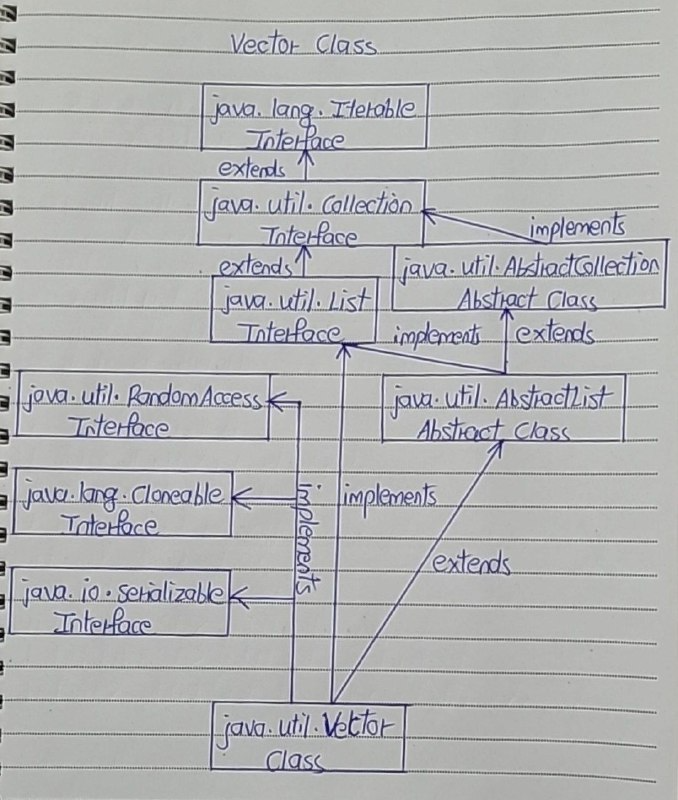 Vector Class
java.lang.Iterable
Interface
extends
java.util.Collection
Interface
implements
extends
java.util.AbstractCollection
Abstract Class
java.util.List
Interface
implements
extends
java.util.RandomAccess
Interface
java.util.AbstractList
Abstract Class
java.lang.Cloneable
Interface
implements
implements
extends
java.io.Serializable
Interface
java.util.Vector
Class